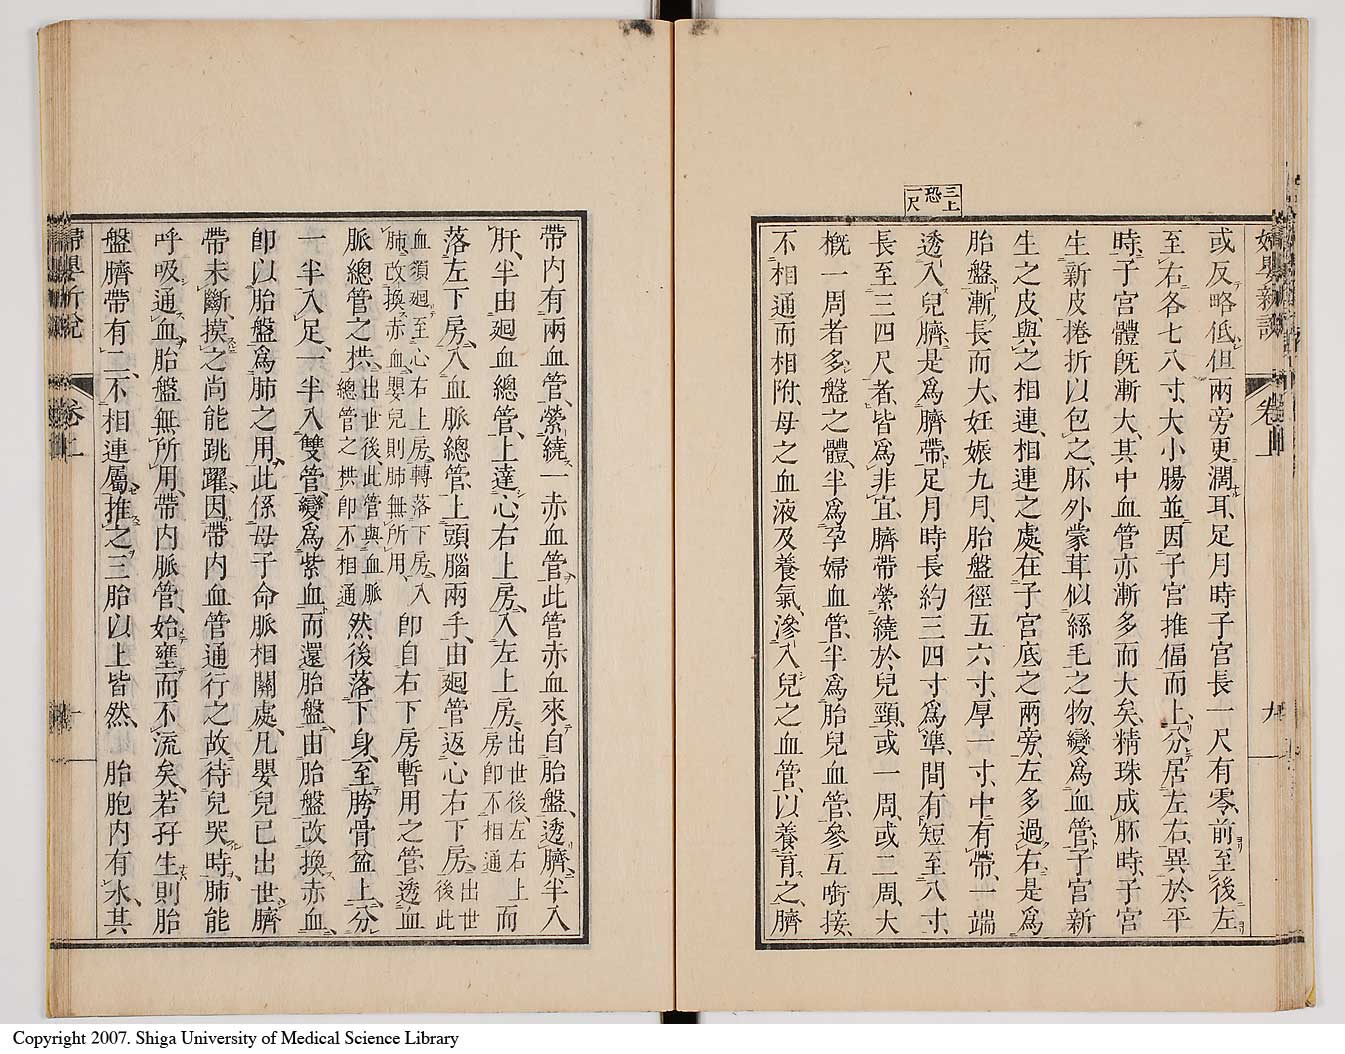 婦嬰新説 卷上 九
三上
恐
一尺
或反略低但兩旁更潤耳足月時子宮長一尺有零前至後左
至右各七八寸大小腸並因子宮推偪而上分居左右異於平
時子宮體既漸大其中血管亦漸多而大矣精珠成胚時子宮
生新皮捲折以包之胚外蒙茸似絲毛之物變爲血管子宮新
生之皮與之相連相連之處在子宮底之兩旁左多過右是爲
胎盤漸長而大妊娠九月胎盤徑五六寸厚二寸中有帶一端
透入兒臍是爲臍帶足月時長約三四寸爲準間有短至八寸
長至三四尺者皆爲非宜臍帶縈繞於兒頸或一周或二周大
概一周者多盤之體半爲孕婦血管半爲胎兒血管參互啣接
不相通而相附母之血液及養氣滲入兒之血管以養育之臍
帶内有兩血管縈繞一赤血管此管赤血來自胎盤透臍半入
肝半由廻血總管上達心右上房入左上房出世後左右上房即不相通而
落左下房入血脈總管上頭腦兩手由廻管返心右下房出世後此
血須廻至心右上房轉落下房入肺改換赤血嬰兒則肺無所用即自右下房暫用之管透血
脈總管之拱出世後此管與血脈總管之拱即不相通然後落下身至胯骨盆上分
一半入足一半入雙管變爲紫血而還胎盤由胎盤改換赤血
即以胎盤爲肺之用此係母子命脈相關處凡嬰兒已出世臍
帶未斷摸之尚能跳躍因帶内血管通行之故待兒哭時肺能
呼吸通血胎盤無所用帶内脈管始壅而不流矣若孖生則胎
盤臍帶有二不相連屬推之三胎以上皆然 胎胞内有水其
卷上
Copyright 2007. Shiga University of Medical Science Library